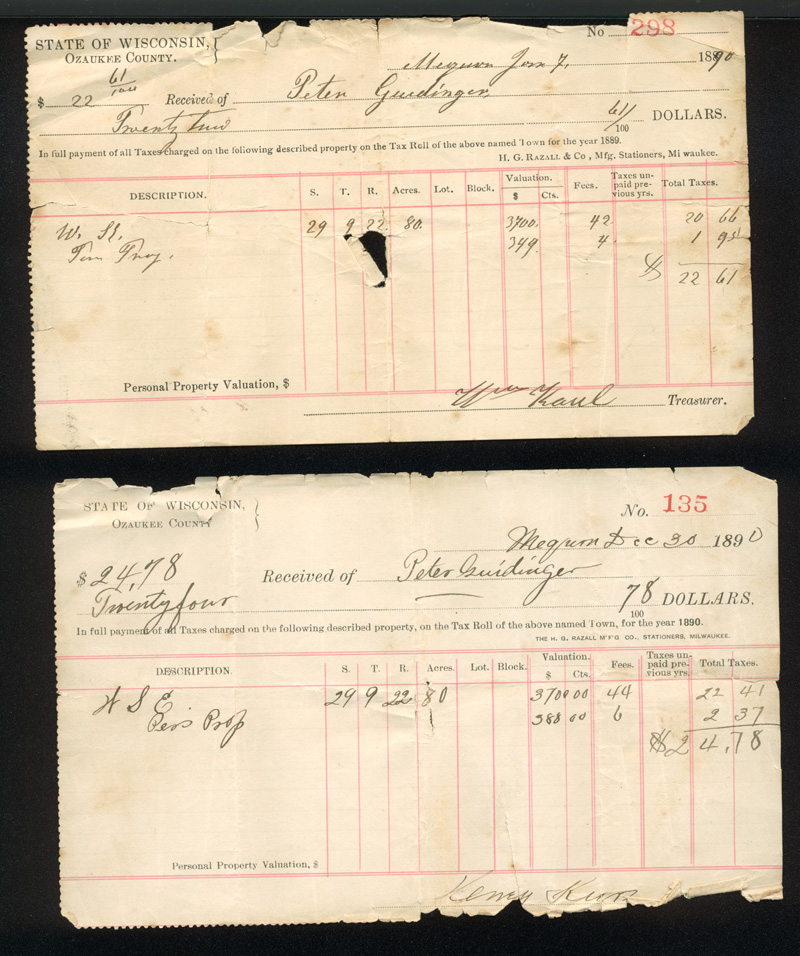 No 298
STATE OF WISCONSIN,
OZAUKEE COUNTY.
Mequon Jan 7, 1890
$ 22 61/100 Received of Peter Guidinger
Twenty two 61/100 DOLLARS.
In full payment of all Taxes charged on the following described property on the Tax Roll of the above named Town for the year 1889.
H. G. RAZALL & Co, Mfg. Stationers, Milwaukee.
DESCRIPTION. S. T. R. Acres. Lot. Block. Valuation. $ Cts. Fees. Taxes unpaid previous yrs. Total Taxes.
W. 29 9 22 80. 3700. 42 20 66
349. 4 1 95
$ 22 61
Personal Property Valuation, $
Wm Kaul Treasurer.
STATE OF WISCONSIN,
OZAUKEE COUNTY
No. 135
Mequon Dec 30 1890
$ 24,78 Received of Peter Guidinger
Twenty four 78/100 DOLLARS.
In full payment of all Taxes charged on the following described property, on the Tax Roll of the above named Town, for the year 1890.
THE H. G. RAZALL M'F'G CO., STATIONERS, MILWAUKEE.
DESCRIPTION. S. T. R. Acres. Lot. Block. Valuation. $ Cts. Fees. Taxes unpaid previous yrs. Total Taxes.
W S E 29 9 22 80 3700 00 44 22 41
Pers Prop 388 00 6 2 37
$ 24,78
Personal Property Valuation, $